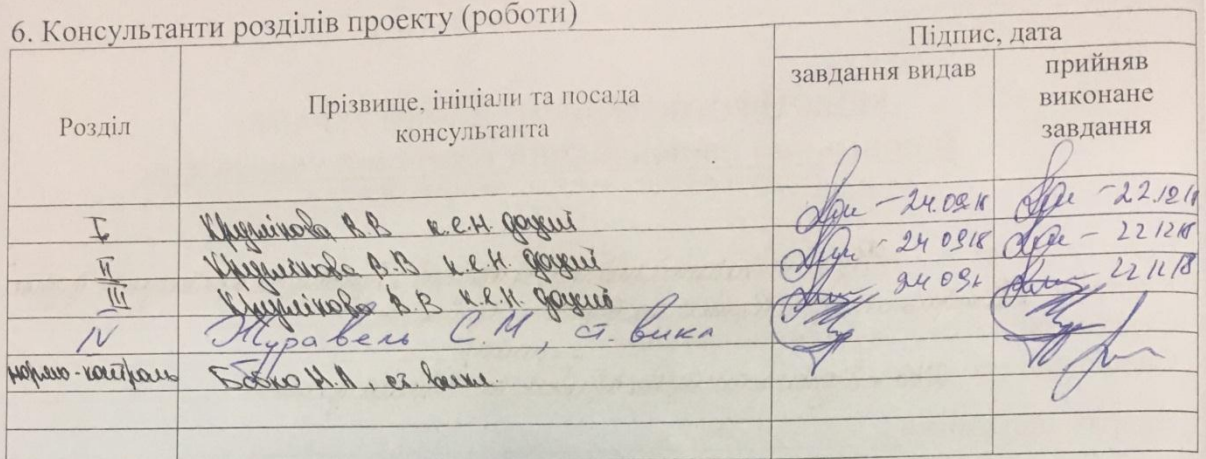 6. Консультанти розділів проекту (роботи)
Розділ
Прізвище, ініціали та посада
консультанта
Підпис, дата
завдання видав
прийняв
виконане
завдання
I Круглікова В.В к.е.н. доцент - 24.09.18 - 22.12.18
II Круглікова В.В к.е.н. доцент - 24 09 18 - 22 12 18
III Круглікова В.В к.е.н. доцент 24 09 18 - 22 12 18
IV Журавель С.М, ст. викл
нормо-контроль Бобко Н.А, ст. викл.